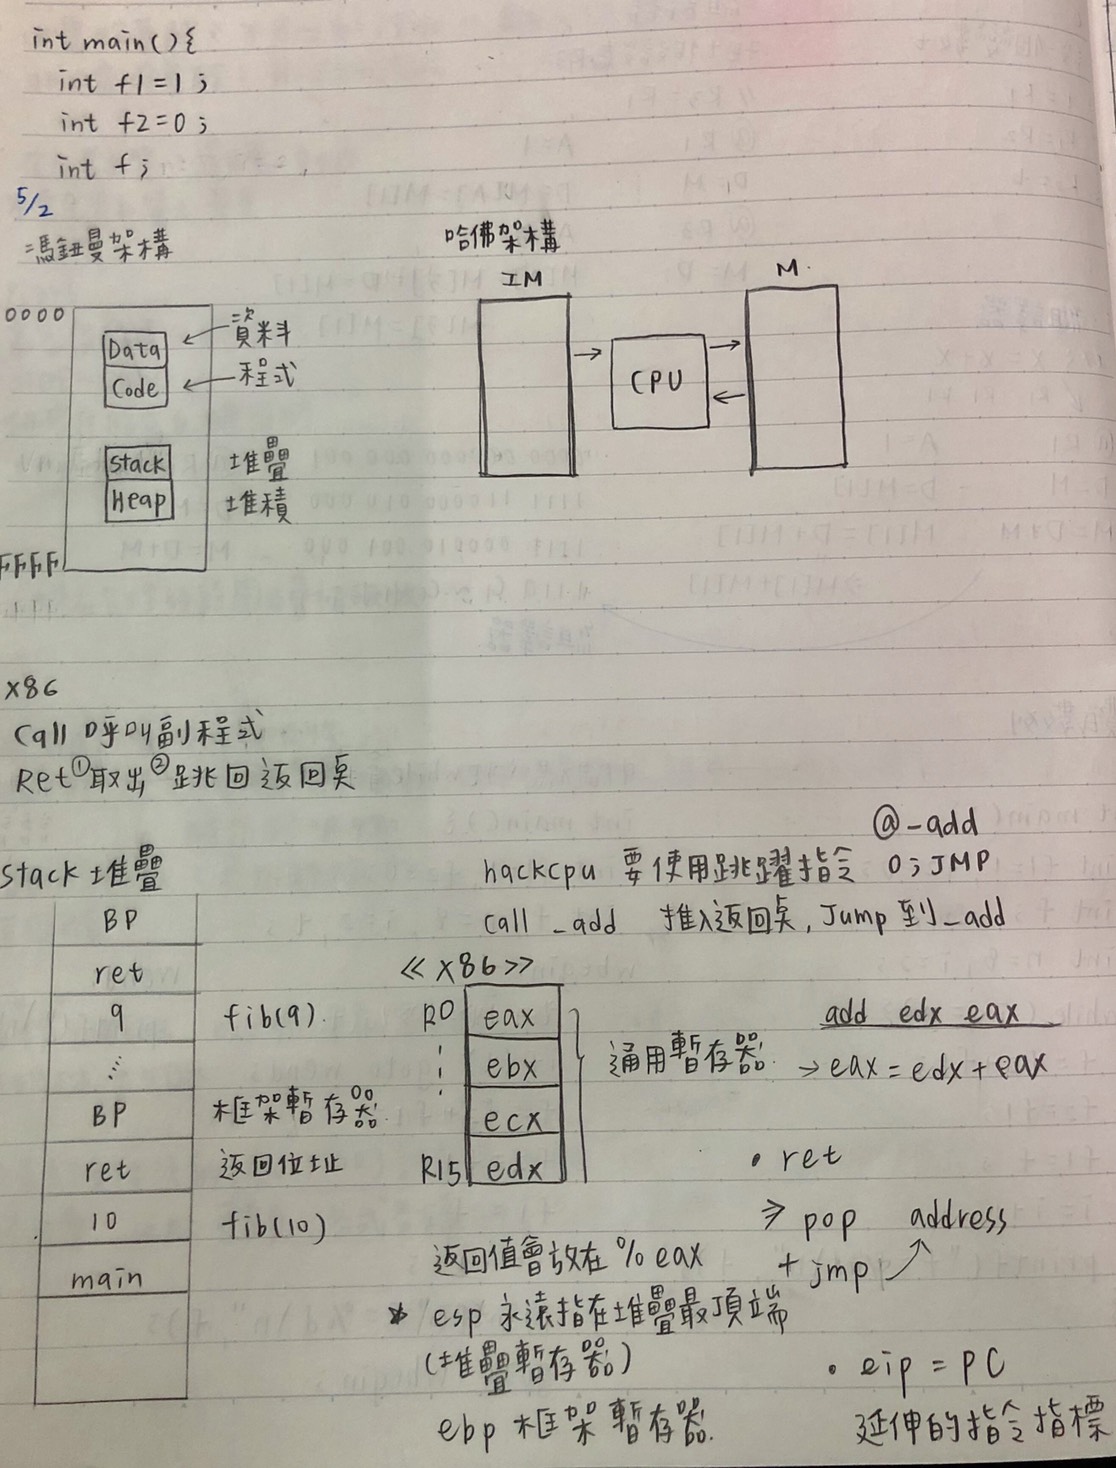 int main(){
int f1=1;
int f2=0;
int f;
5/2
馮鈕曼架構
0000
Data
資料
Code
程式
Stack
堆疊
Heap
堆積
FFFF
哈佛架構
IM
M
CPU
x86
Call 呼叫副程式
Ret ①取出 ②跳回返回桌
Stack 堆疊
BP
ret
9 fib(9)
⋮
BP 框架暫存器
ret 返回位址
10 fib(10)
main
@_add
hackcpu 要使用跳躍指令 0;JMP
call _add 推入返回桌, Jump 到_add
《x86》
R0 eax
ebx
ecx
R15 edx
通用暫存器
add edx eax
→ eax = edx + eax
• ret
⇒ pop address
+ jmp
返回值會放在 % eax
* esp 永遠指在堆疊最頂端
(堆疊暫存器)
ebp 框架暫存器
• eip = PC
延伸的指令指標